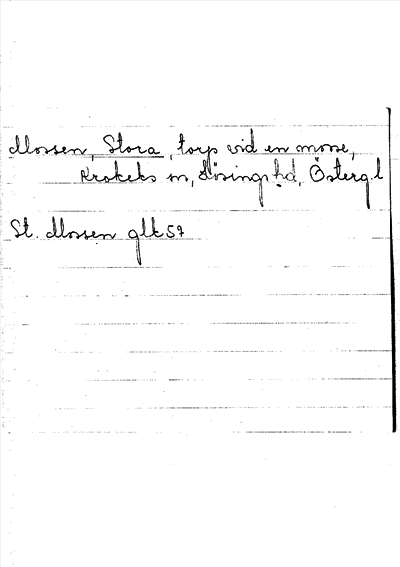 Mossen, Stora, torp vid en mosse,
Krokeks sn, Lösings hd, Österg.l
St. Mossen glk 57